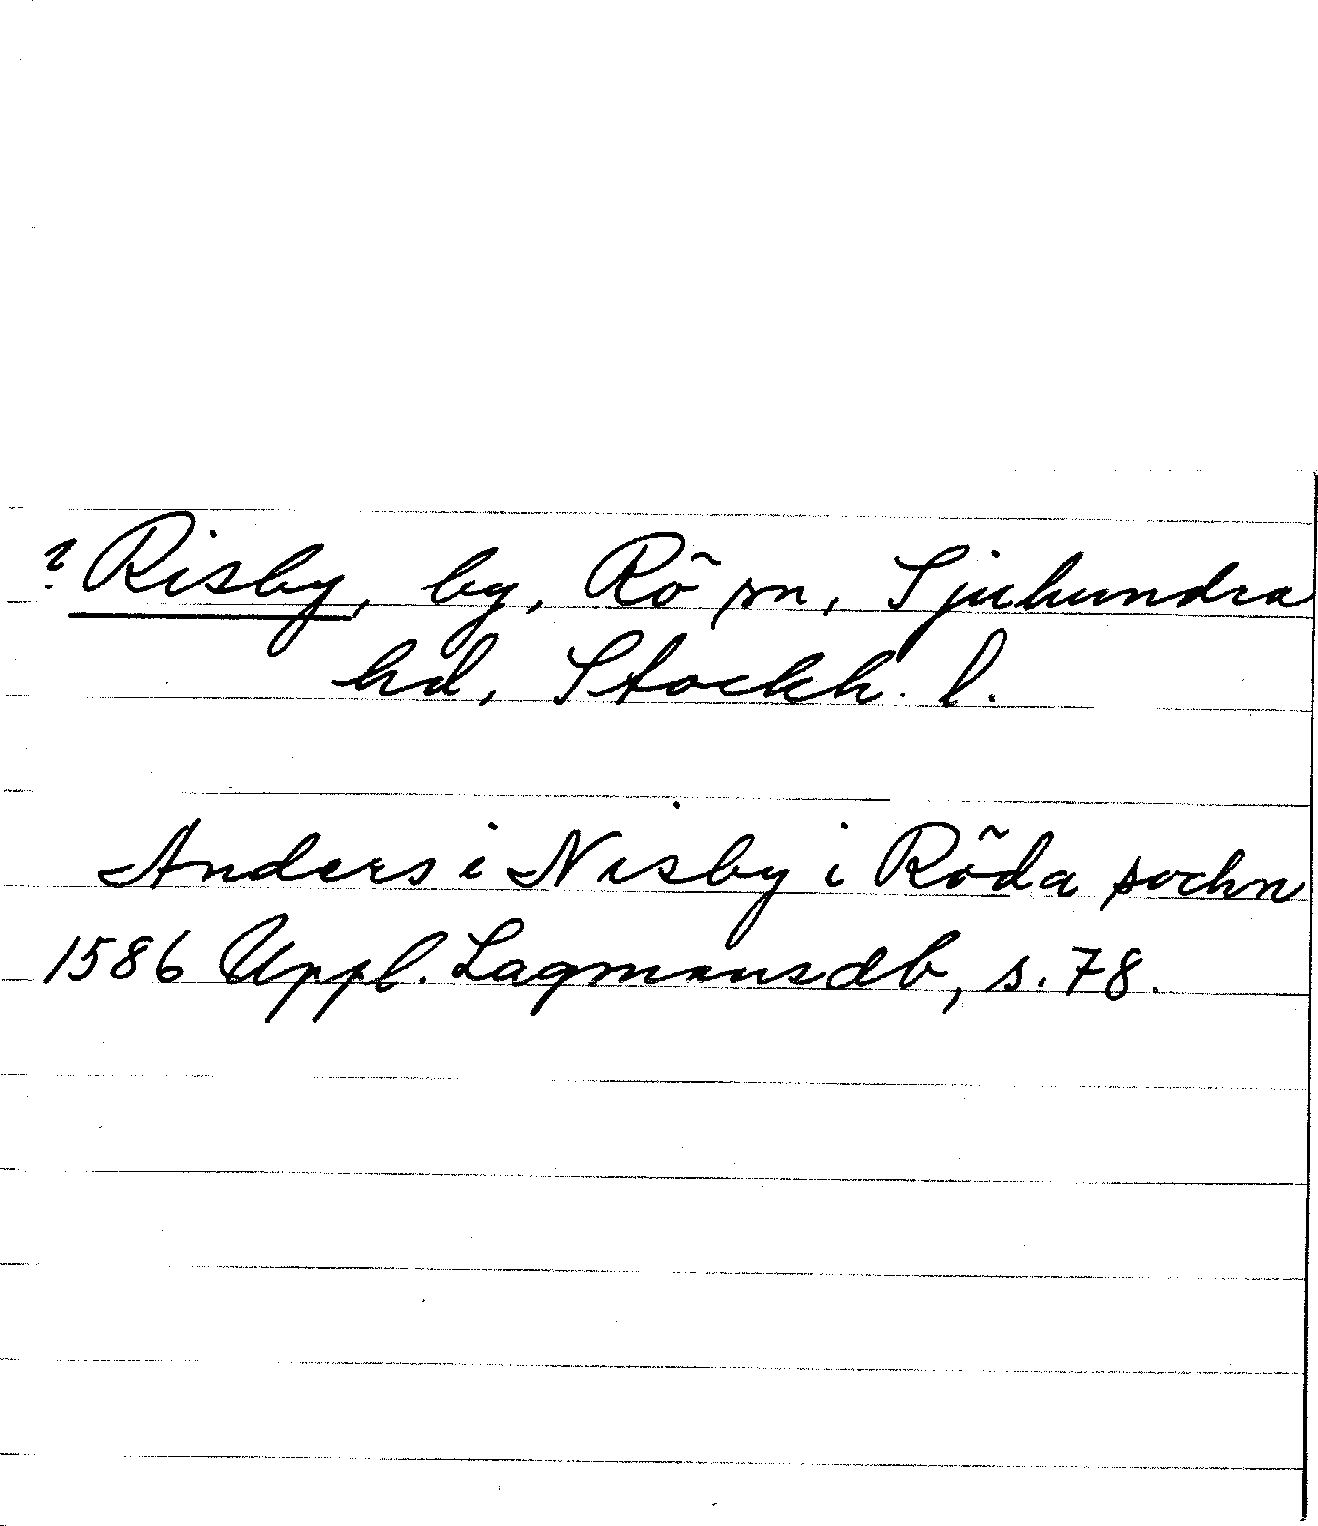 ? Risby, by, Rö sn, Sjuhundra
hd, Stockh. l.
Anders i Nisby i Röda sochn
1586 Uppl. Lagmansdb, s. 78.